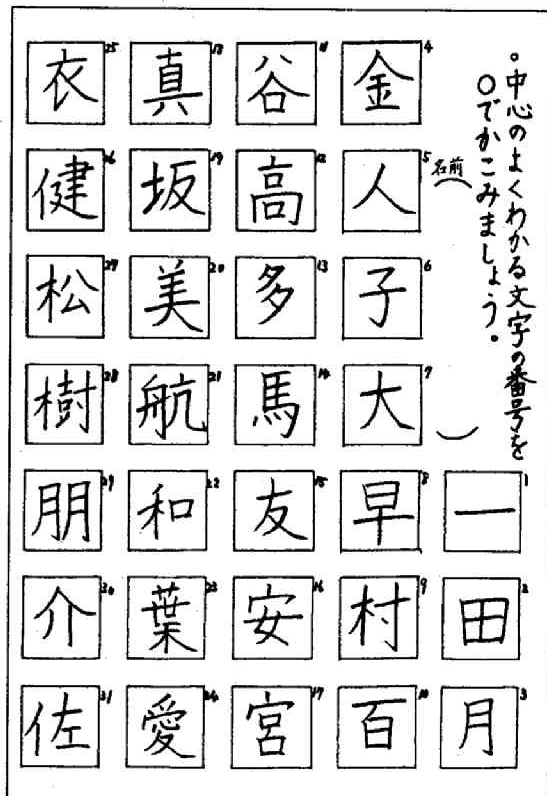 。中心のよくわかる文字の番号を
〇でかこみましょう。
名前（　　　）
1 一
2 田
3 月
4 金
5 人
6 子
7 大
8 早
9 村
10 百
11 谷
12 高
13 多
14 馬
15 友
16 安
17 宮
18 真
19 坂
20 美
21 航
22 和
23 葉
24 愛
25 衣
26 健
27 松
28 樹
29 朋
30 介
31 佐